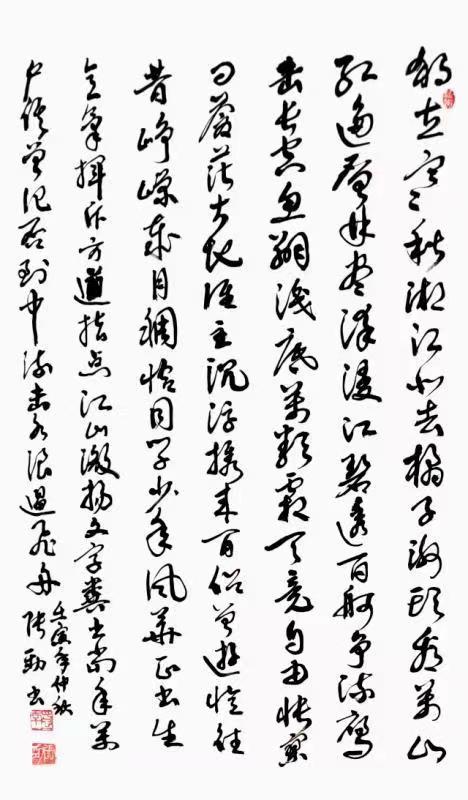 独立寒秋湘江北去橘子洲头看万山
红遍层林尽染漫江碧透百舸争流鹰
击长空鱼翔浅底万类霜天竞自由怅寥
问苍茫大地谁主沉浮携来百侣曾游忆往
昔峥嵘岁月稠恰同学少年风华正书生
意气挥斥方遒指点江山激扬文字粪土当年万
户侯曾记否到中流击水浪遏飞舟
壬寅年仲秋
张劲书